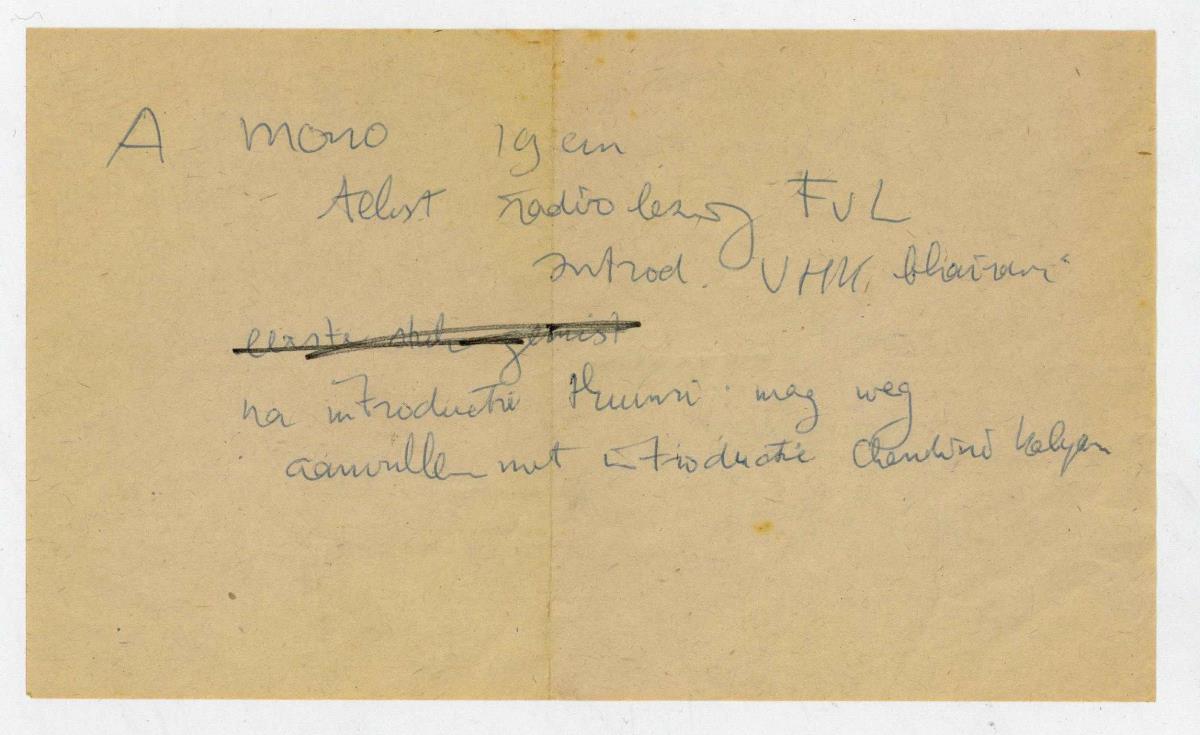 A mono 19 cm
tekst radio lezing FvL
introd. VHK. bhairavi
eerste stuk gemist
na introductie Thumri mag weg
aanvullen met introductie Chandini Kalyan